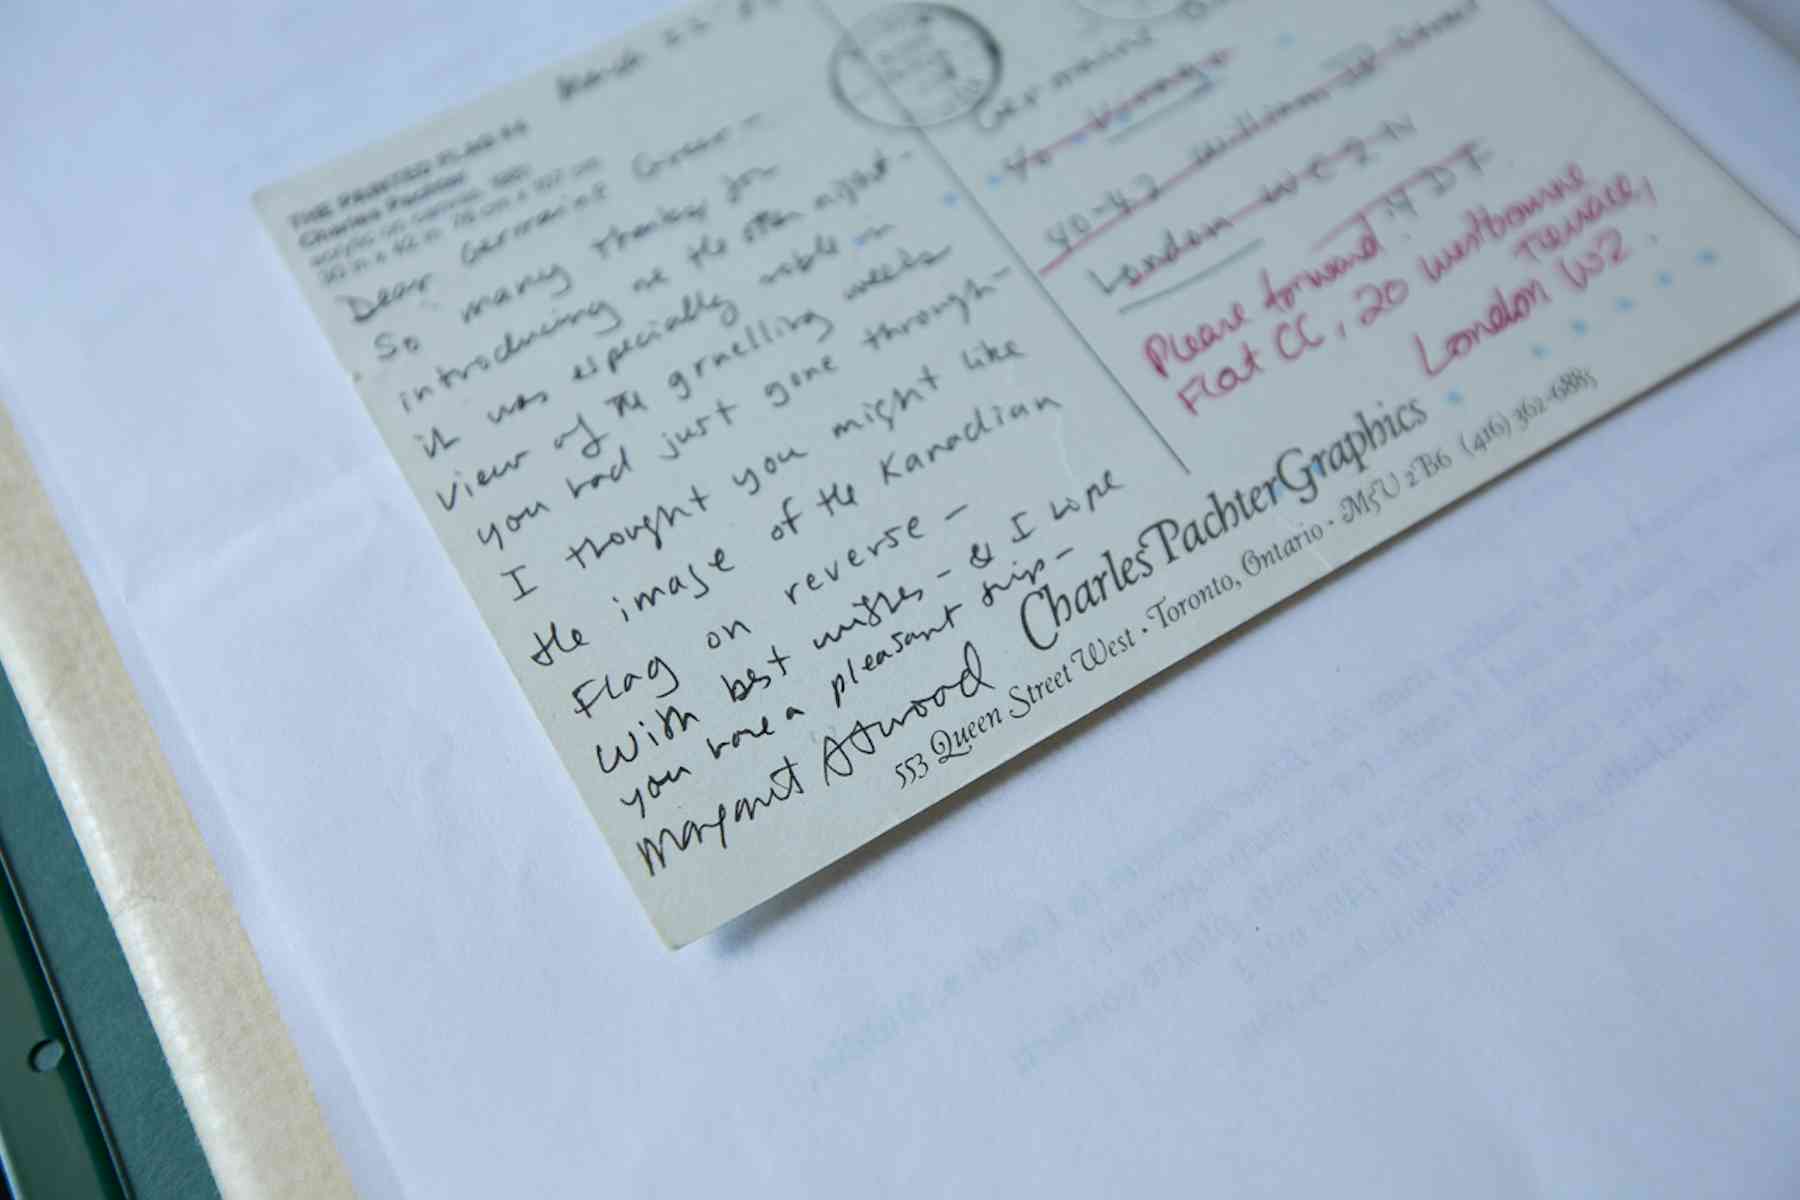 March 22
THE PAINTED FLAG
Charles Pachter
acrylic on canvas, 1981
30 in x 42 in 76 cm x 107 cm
Dear Germaine Greer —
So many thanks for
introducing me the other night.
it was especially noble in
view of the gruelling weeks
you had just gone through —
I thought you might like
the image of the Kanadian
Flag on reverse —
With best wishes — & I hope
you have a pleasant trip —
Margaret Atwood
Germaine
% Virago
40-42 William IV Street
London WC2N 4DF
Please forward:
Flat CC, 20 Westbourne
Terrace,
London W2.
Charles Pachter Graphics
553 Queen Street West · Toronto, Ontario · M5V 2B6 (416) 362-6885